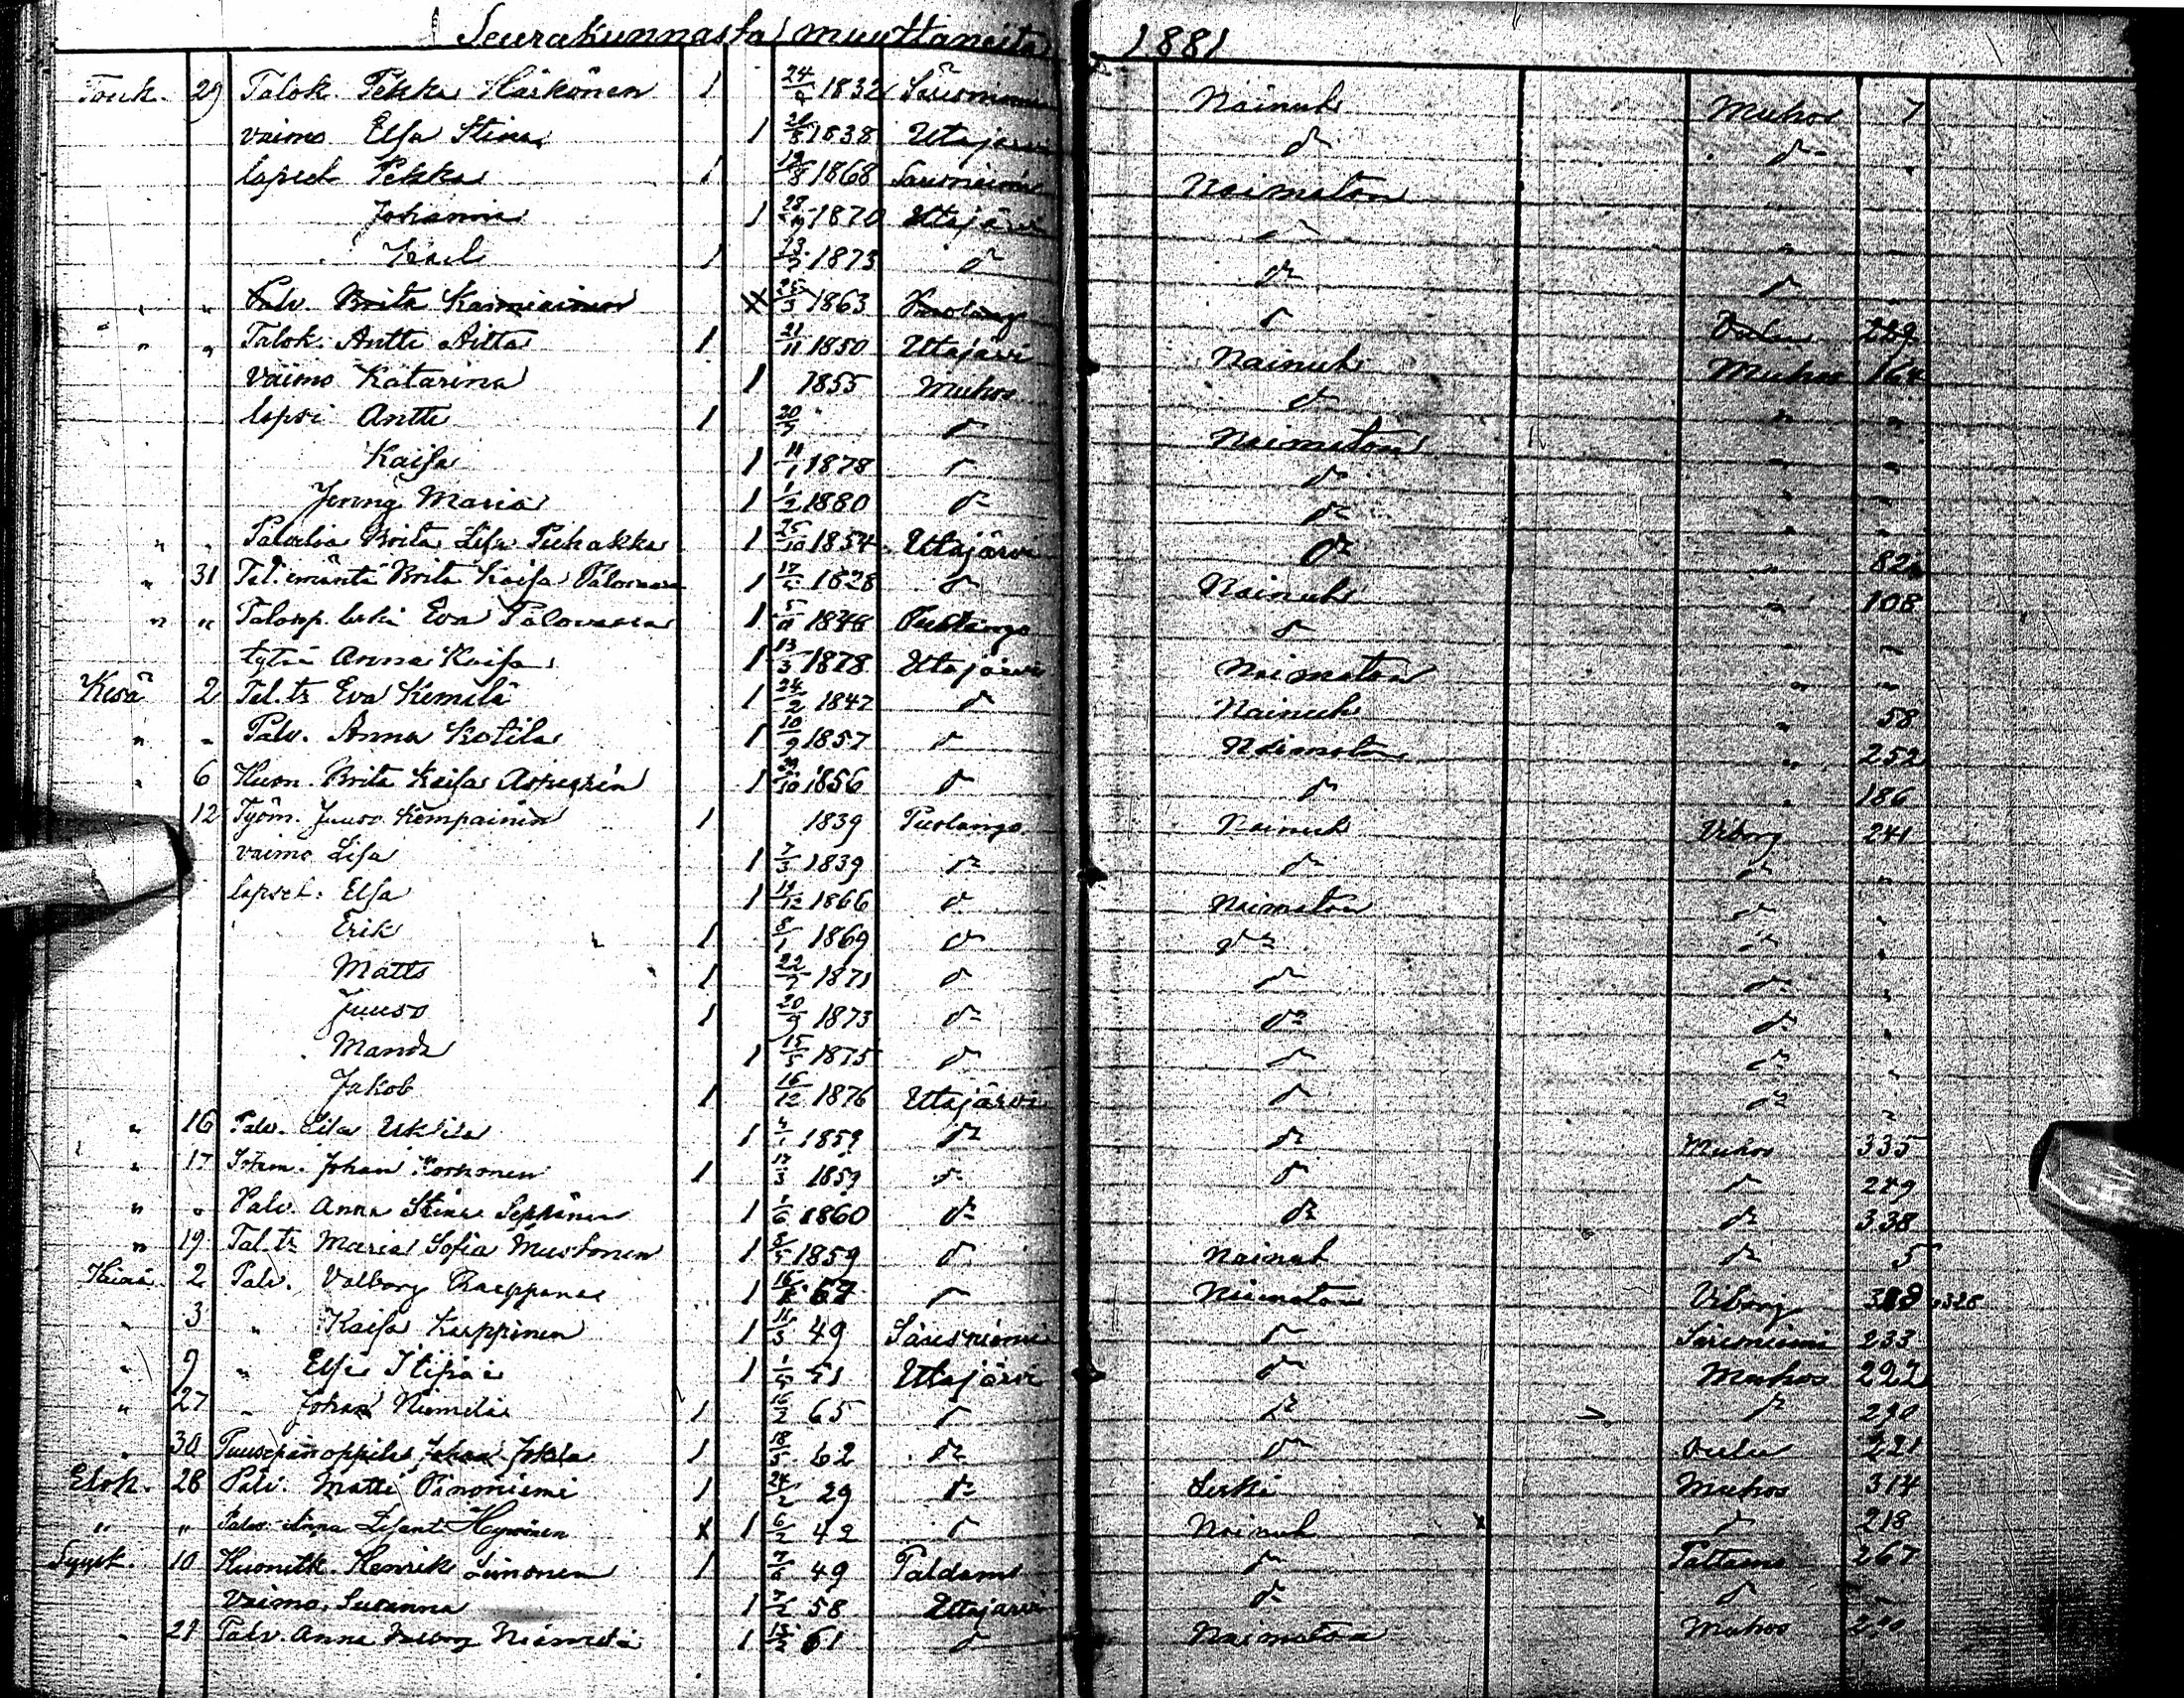 Seurakunnasta muuttaneita 1881
Touk. 29 Talok. Pekka Härkönen 1 24/ 1832 Säresniemi Nainut Muhos 7
vaimo Elsa Stina 1 /8 1838 Utajärvi d:o d:o "
lapset Pekka 1 19/8 1868 Säresniemi Naimaton
Johanna 1 28/9 1870 Utajärvi d:o "
Karl 1 1873 d:o d:o d:o "
" " Palv. Brita Karniainen 1 25/3 1863 Puolango d:o Oulu
" " Talok. Antti Aitta 1 21/11 1850 Utajärvi Nainut Muhos 164
vaimo Katarina 1 1855 Muhos d:o " "
lapsi Antti 1 20/7 " d:o Naimaton " "
Kaisa 1 11/1 1878 d:o d:o " "
Jenny Maria 1 1/2 1880 d:o d:o " "
" " Brita Lisa Puhakka 1 25/10 1854 Utajärvi d:o " 82
" 31 Tal. emäntä Brita Kaisa Palovaara 1 17/ 1828 d:o Nainut " 108
" " Talonp. leski Eva Palovaara 1 5/11 1848 Puolango d:o " "
tytär Anna Kaisa 1 13/3 1878 Utajärvi Naimaton " "
Kesä 2 Tal. tr Eva Kemilä 1 24/2 1847 d:o Nainut " 58
" " Palv. Anna Kotila 1 10/9 1857 d:o Naimaton " 252
" 6 Huon. Brita Kaisa Aspegrén 1 /10 1856 d:o d:o " 186
12 Työm. Juuso Kompainen 1 1839 Puolango Nainut Viborg 241
vaimo Lisa 1 7/3 1839 d:o d:o d:o "
lapset. Elsa 1 19/12 1866 d:o Naimaton d:o "
Erik 1 8/1 1869 d:o d:o d:o "
Matts 1 22/7 1871 d:o d:o d:o "
Juuso 1 20/9 1873 d:o d:o d:o "
Manda 1 15/5 1875 d:o d:o d:o "
Jakob 1 16/12 1876 Utajärvi d:o d:o "
" 16 Palv. Lisa Ukkila 1 4/1 1859 d:o d:o Muhos 335
" 17 Johan Korhonen 1 17/3 1859 d:o d:o d:o 249
" " Palv. Anna Stina Seppänen 1 1/6 1860 d:o d:o d:o 338
" 19 Tal. tr Maria Sofia Mustonen 1 3/5 1859 d:o Nainut d:o 5
Heinä. 2 Palv. Valborg Karppanen 1 16/ 67 d:o Naimaton Viborg 328
" 3 " Kaisa Karppinen 1 11/3 49 Säresniemi d:o Säresniemi 233
" 9 " Elsa 1 51 Utajärvi d:o Muhos 292
" 27 " Johan Niemelä 1 16/2 65 d:o d:o d:o 290
" 30 Puusepän oppilas Johan Jokela 1 18/3 62 d:o d:o Oulu 221
Elok. 28 Palv. Matti Pänoniemi 1 24/2 29 d:o Leski Muhos 314
" " Palv. Anna Hyvönen x 1 6/2 42 d:o Nainut x d:o 218
Syysk. 10 Huonetk. Henrik Limonen 1 7/6 49 Paldamo d:o Paltamo 267
vaimo Susanna 1 7/2 58 Utajärvi d:o d:o "
" 21 Palv. Anna Niemelä 1 15/2 61 d:o Naimaton Muhos 290